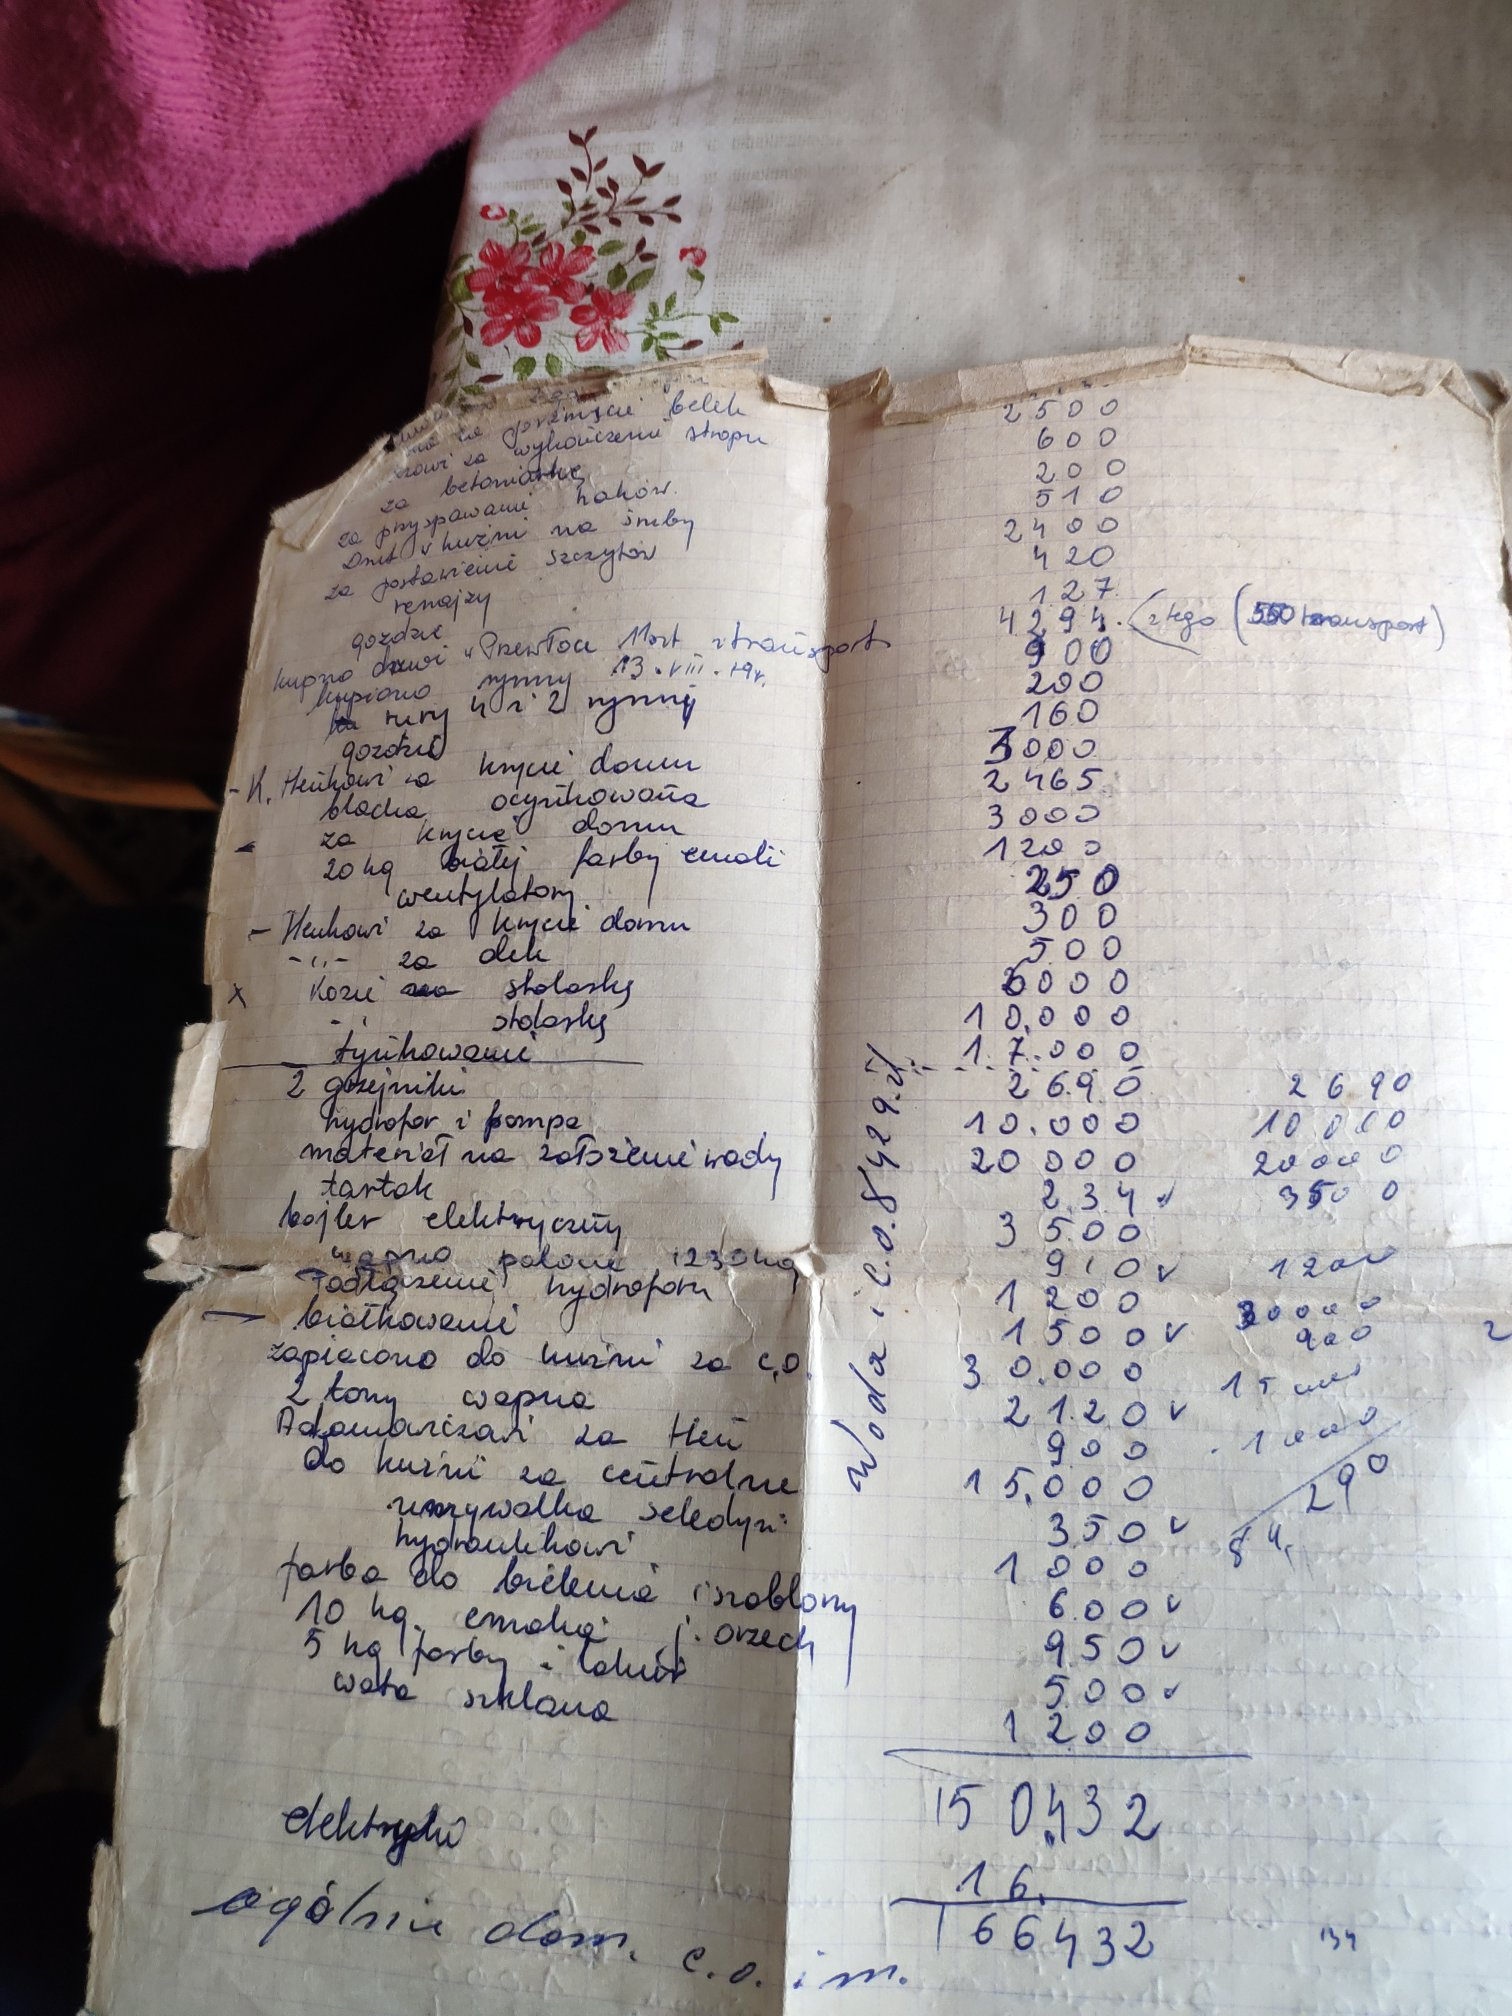 za przyniesienie belek
za wykończenie stropu
za betoniarkę
za przyspawanie haków
Drut w kuźni na śruby
za postawienie szczytów
gozdzie
kupno drzwi w Przewłoce 11szt z transport
kupiono rynny 13.VIII.79r.
rury 4 i 2 rynny
gozdzie
- K. Heńkowi za krycie domu
blacha ocynkowana
- za krycie domu
20 kg białej farby emali
wentylatory
- Heńkowi za krycie domu
-"- za dek
x Kozie stolarkę
-" stolarkę
tynkowanie
2 grzejniki
hydrofor i pompa
materiał na założenie wody
tartak
bojler elektryczny
wapno palone 1230 kg
Podłączenie hydroforu
- białkowanie
zapłacono do kuźni za c.o.
2 tony wapna
Adamowiczowi za Heń
Do kuźni za centralne
umywalka seledyn
hydraulikowi
farba do bielenia i szablony
10 kg emalia j. orzech
5 kg farby i lakier
wata szklana
elektryka
ogólnie dom. c.o. i m.
2500
600
200
510
2400
420
127
4294. z tego (550 transport)
900
200
160
3000
2465
3000
1200
250
300
500
6000
10.000
17.000
2690 2690
10.000 10000
20 000 20000
234 v 3500
3 500
910 v 1200
1 200 30000
1500 v 900
30.000 15000
2120 v 1000
900 290
15.000 84,
350 v
1 000
600 v
950 v
500 v
1200
150.432
16.
166432
134
Woda i c.o. 84290 zł